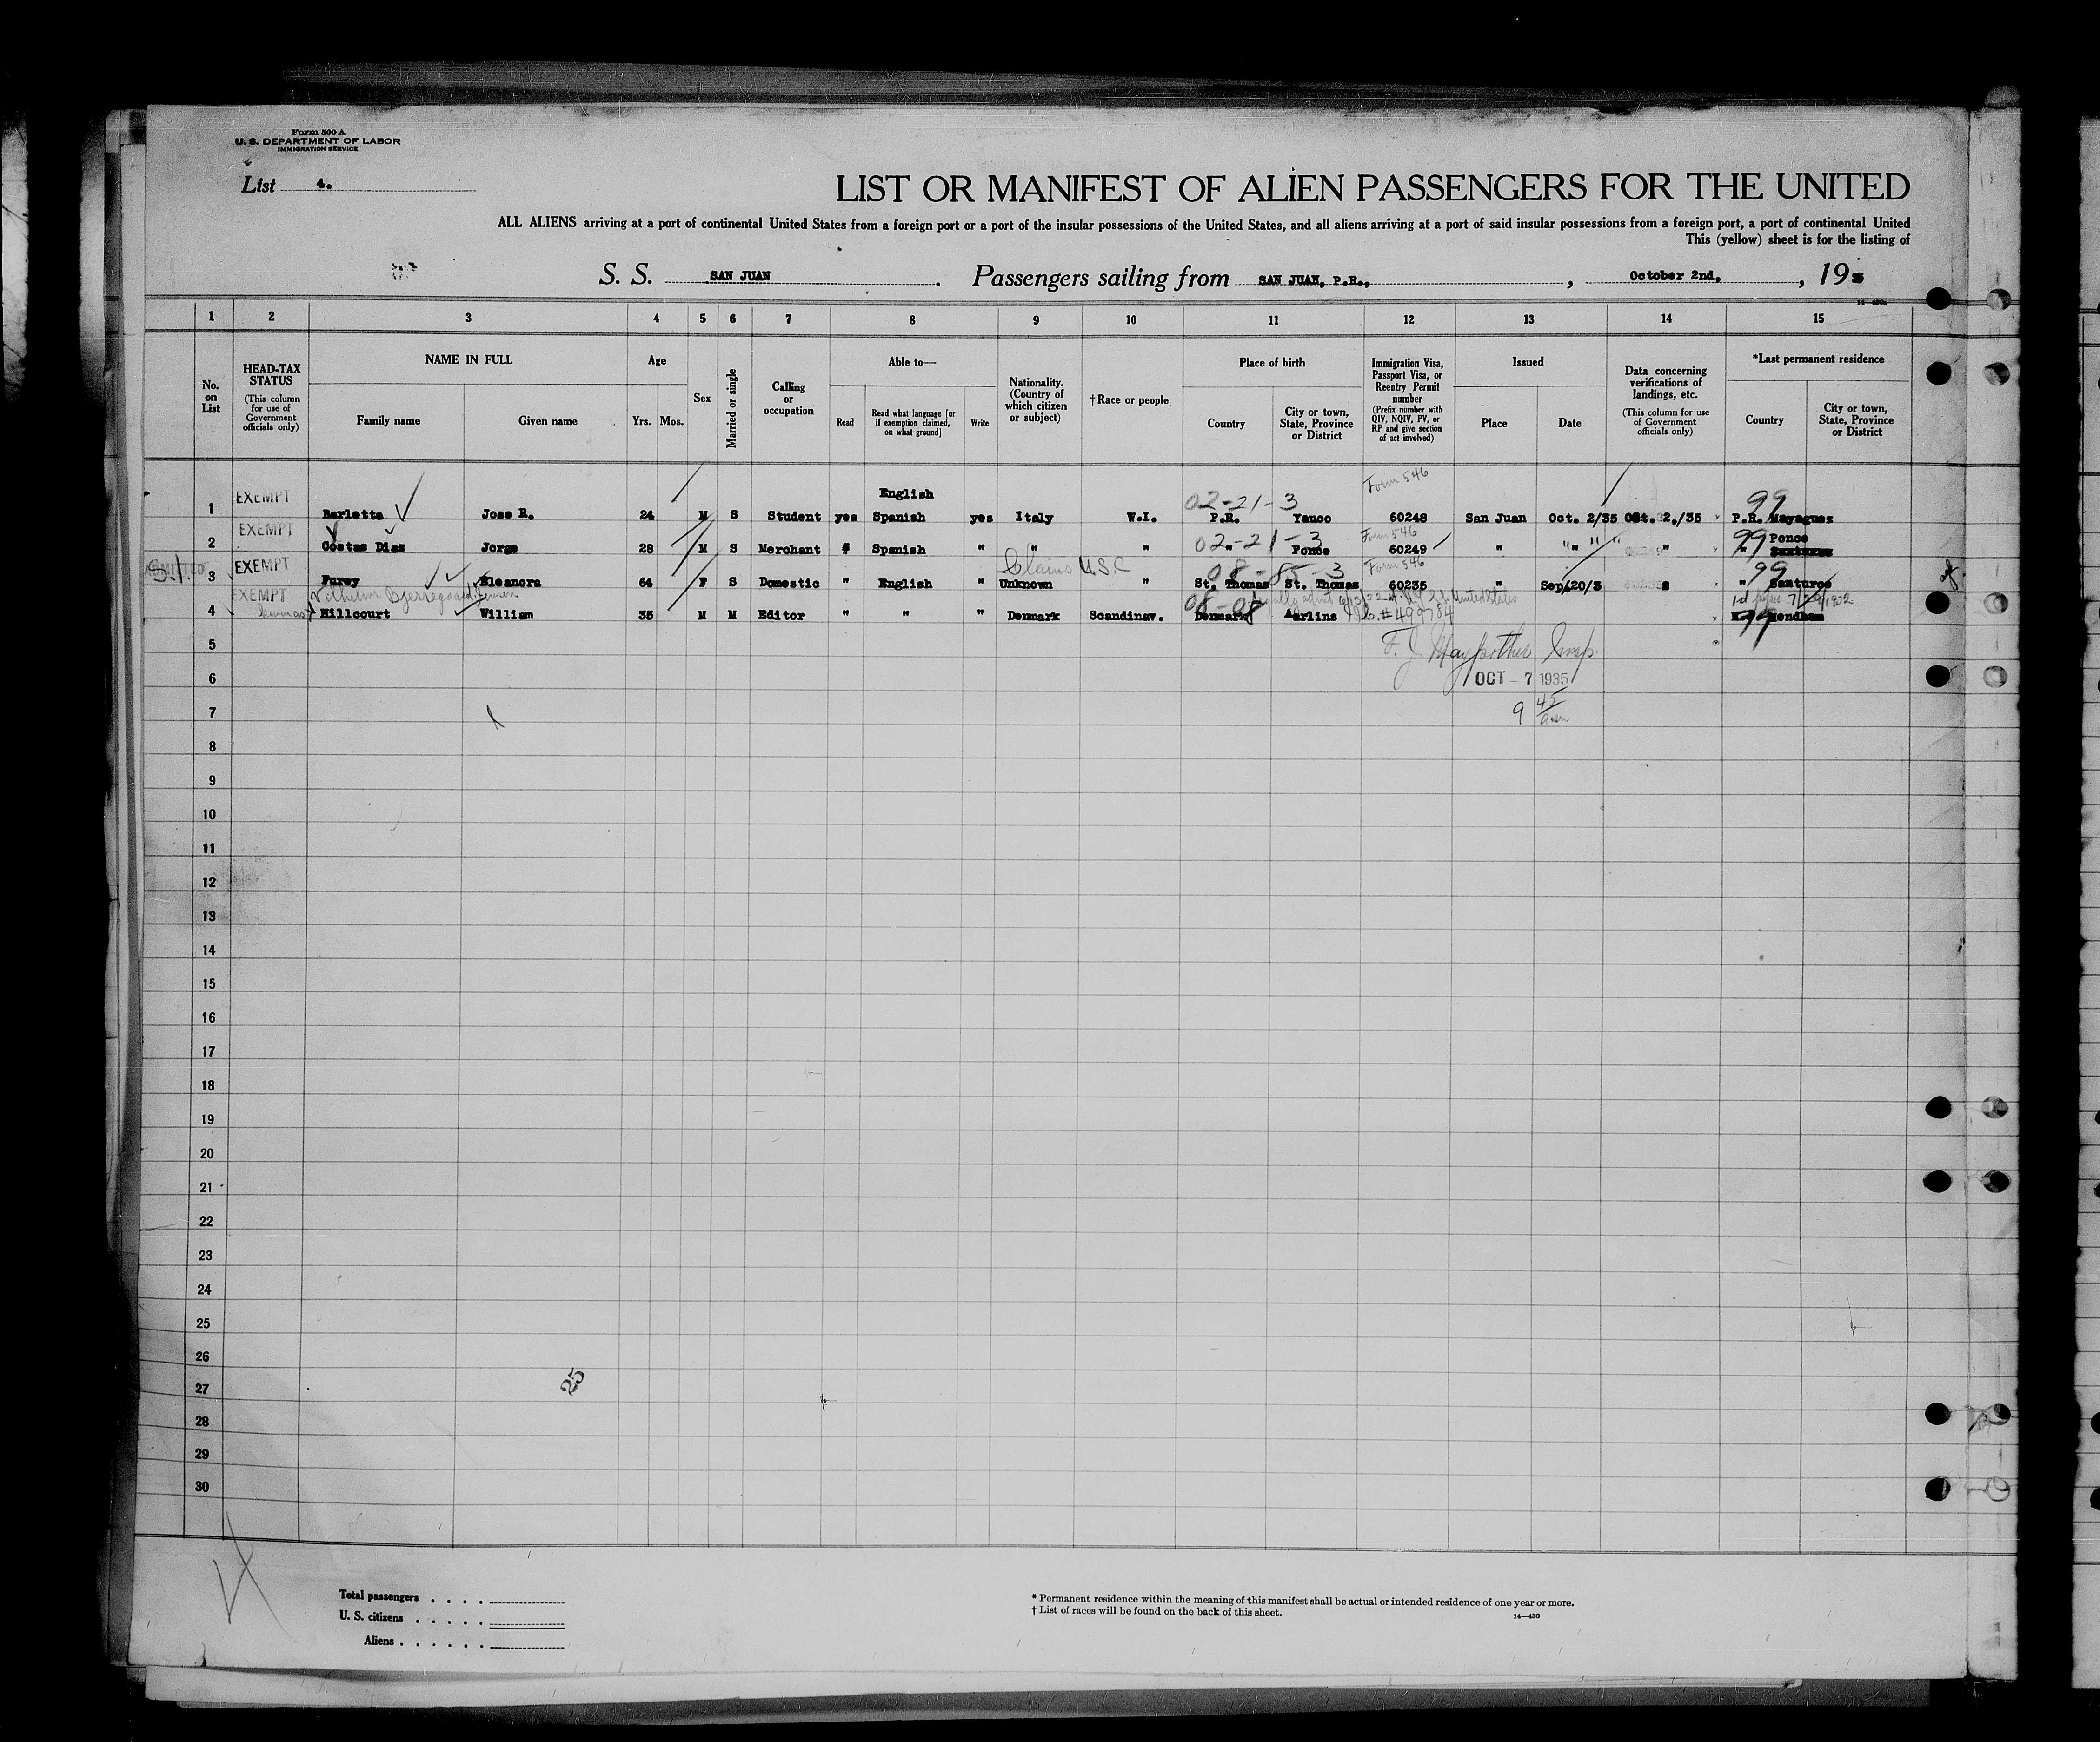 Form 500 A
U. S. DEPARTMENT OF LABOR
IMMIGRATION SERVICE
List 4.
LIST OR MANIFEST OF ALIEN PASSENGERS FOR THE UNITED
ALL ALIENS arriving at a port of continental United States from a foreign port or a port of the insular possessions of the United States, and all aliens arriving at a port of said insular possessions from a foreign port, a port of continental United
This (yellow) sheet is for the listing of
S. S. SAN JUAN. Passengers sailing from SAN JUAN, P.R., , October 2nd, , 193
1 2 3 4 5 6 7 8 9 10 11 12 13 14 15
No. on List
HEAD-TAX STATUS (This column for use of Government officials only)
NAME IN FULL Family name Given name
Age Yrs. Mos.
Sex
Married or single
Calling or occupation
Able to— Read Read what language [or if exemption claimed, on what ground] Write
Nationality. (Country of which citizen or subject)
†Race or people
Place of birth Country City or town, State, Province or District
Immigration Visa, Passport Visa, or Reentry Permit number (Prefix number with QIV, NQIV, PV, or RP and give section of act involved)
Issued Place Date
Data concerning verifications of landings, etc. (This column for use of Government officials only)
*Last permanent residence Country City or town, State, Province or District
Form 546
EXEMPT English 02-21-3 99
1 Barletta Jose R. 24 M S Student yes Spanish yes Italy W.I. P.R. Yauco 60248 San Juan Oct. 2/35 Oct. 2,/35 P.R. Mayaguez
EXEMPT 02-21-3 Form 546 99 Ponce
2 Costas Diaz Jorge 28 M S Merchant " Spanish " " " " Ponce 60249 " " " " Santurce
S.I. ADMITTED EXEMPT Claims U.S.C 08-85-3 Form 546 99
3 Furey Eleanora 64 F S Domestic " English " Unknown " St. Thomas St. Thomas 60235 " Sep/20/3 " Santurce
EXEMPT Vilhelm Bjerregaard Jensen 08-08 United States
4 Hillcourt William 35 M M Editor " " " Denmark Scandinav. Denmark Aarlins #499784 99 Mendham
5
Insp.
6 OCT - 7 1935
7 9 45
8
9
10
11
12
13
14
15
16
17
18
19
20
21
22
23
24
25
26
27 25
28
29
30
Total passengers . . . .
U. S. citizens . . . . .
Aliens . . . . . .
* Permanent residence within the meaning of this manifest shall be actual or intended residence of one year or more.
† List of races will be found on the back of this sheet.
14—430